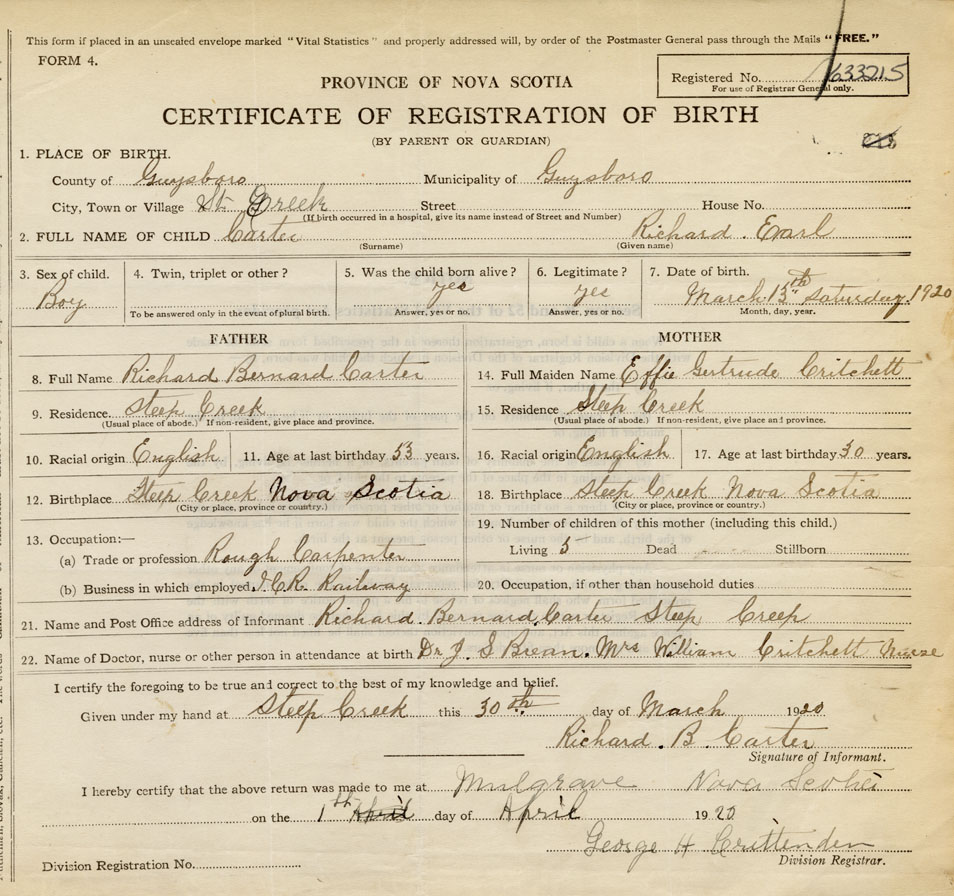 This form if placed in an unsealed envelope marked "Vital Statistics" and properly addressed will, by order of the Postmaster General pass through the Mails "FREE."
FORM 4.
Registered No. 633215
For use of Registrar General only.
PROVINCE OF NOVA SCOTIA
CERTIFICATE OF REGISTRATION OF BIRTH
(BY PARENT OR GUARDIAN)
1. PLACE OF BIRTH.
County of Guysboro Municipality of Guysboro
City, Town or Village St. Creek Street House No.
(If birth occurred in a hospital, give its name instead of Street and Number)
2. FULL NAME OF CHILD Carter Richard Earl
(Surname) (Given name)
3. Sex of child. 4. Twin, triplet or other? 5. Was the child born alive? 6. Legitimate? 7. Date of birth.
Boy yes yes March 13th Saturday, 1920
To be answered only in the event of plural birth. Answer, yes or no. Answer, yes or no. Month, day, year.
FATHER MOTHER
8. Full Name Richard Bernard Carter 14. Full Maiden Name Effie Gertrude Critchett
9. Residence. Steep Creek 15. Residence Steep Creek
(Usual place of abode.) If non-resident, give place and province. (Usual place of abode.) If non-resident, give place and province.
10. Racial origin English 11. Age at last birthday 33 years. 16. Racial origin English 17. Age at last birthday 30 years.
12. Birthplace Steep Creek Nova Scotia 18. Birthplace Steep Creek Nova Scotia
(City or place, province or country.) (City or place, province or country.)
13. Occupation:— 19. Number of children of this mother (including this child.)
(a) Trade or profession Rough Carpenter Living 5 Dead Stillborn
(b) Business in which employed I.C.R. Railway 20. Occupation, if other than household duties
21. Name and Post Office address of Informant Richard. Bernard. Carter Steep Creep
22. Name of Doctor, nurse or other person in attendance at birth Dr J. S Brean. Mrs William Critchett Nurse
I certify the foregoing to be true and correct to the best of my knowledge and belief.
Given under my hand at Steep Creek this 30th day of March 1920
Richard. B. Carter
Signature of Informant.
I hereby certify that the above return was made to me at Mulgrave Nova Scotia
on the 1st April day of April 1920
George H Crittenden
Division Registrar.
Division Registration No.